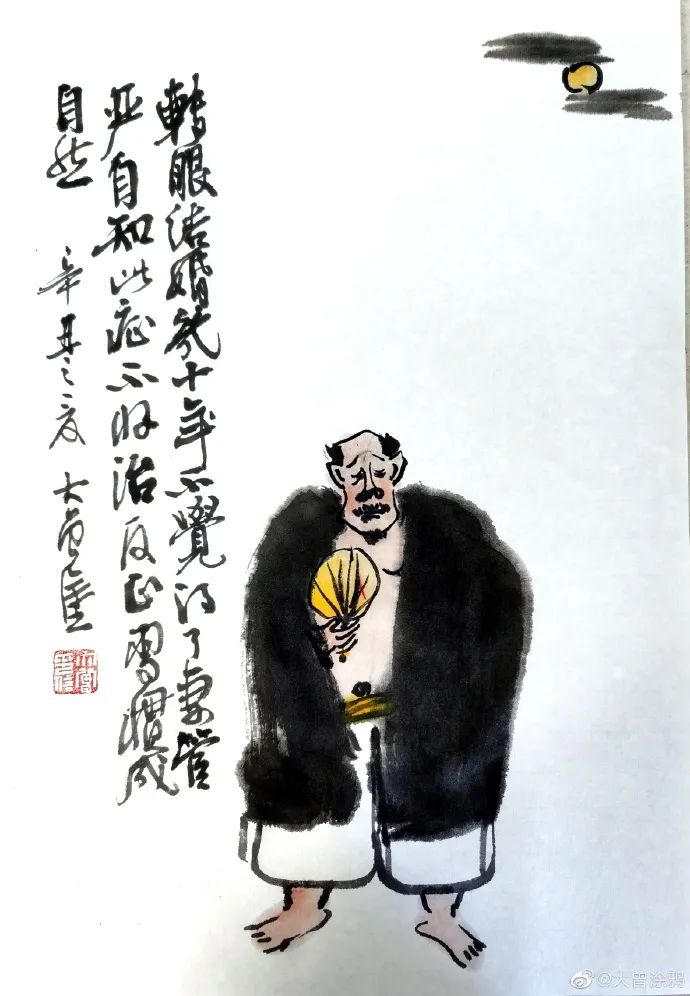 轉眼结婚幾十年不覺得了妻管
严自知此症不好治反正習慣成
自然
辛丑之夏大曾涂
@大曾涂鸦